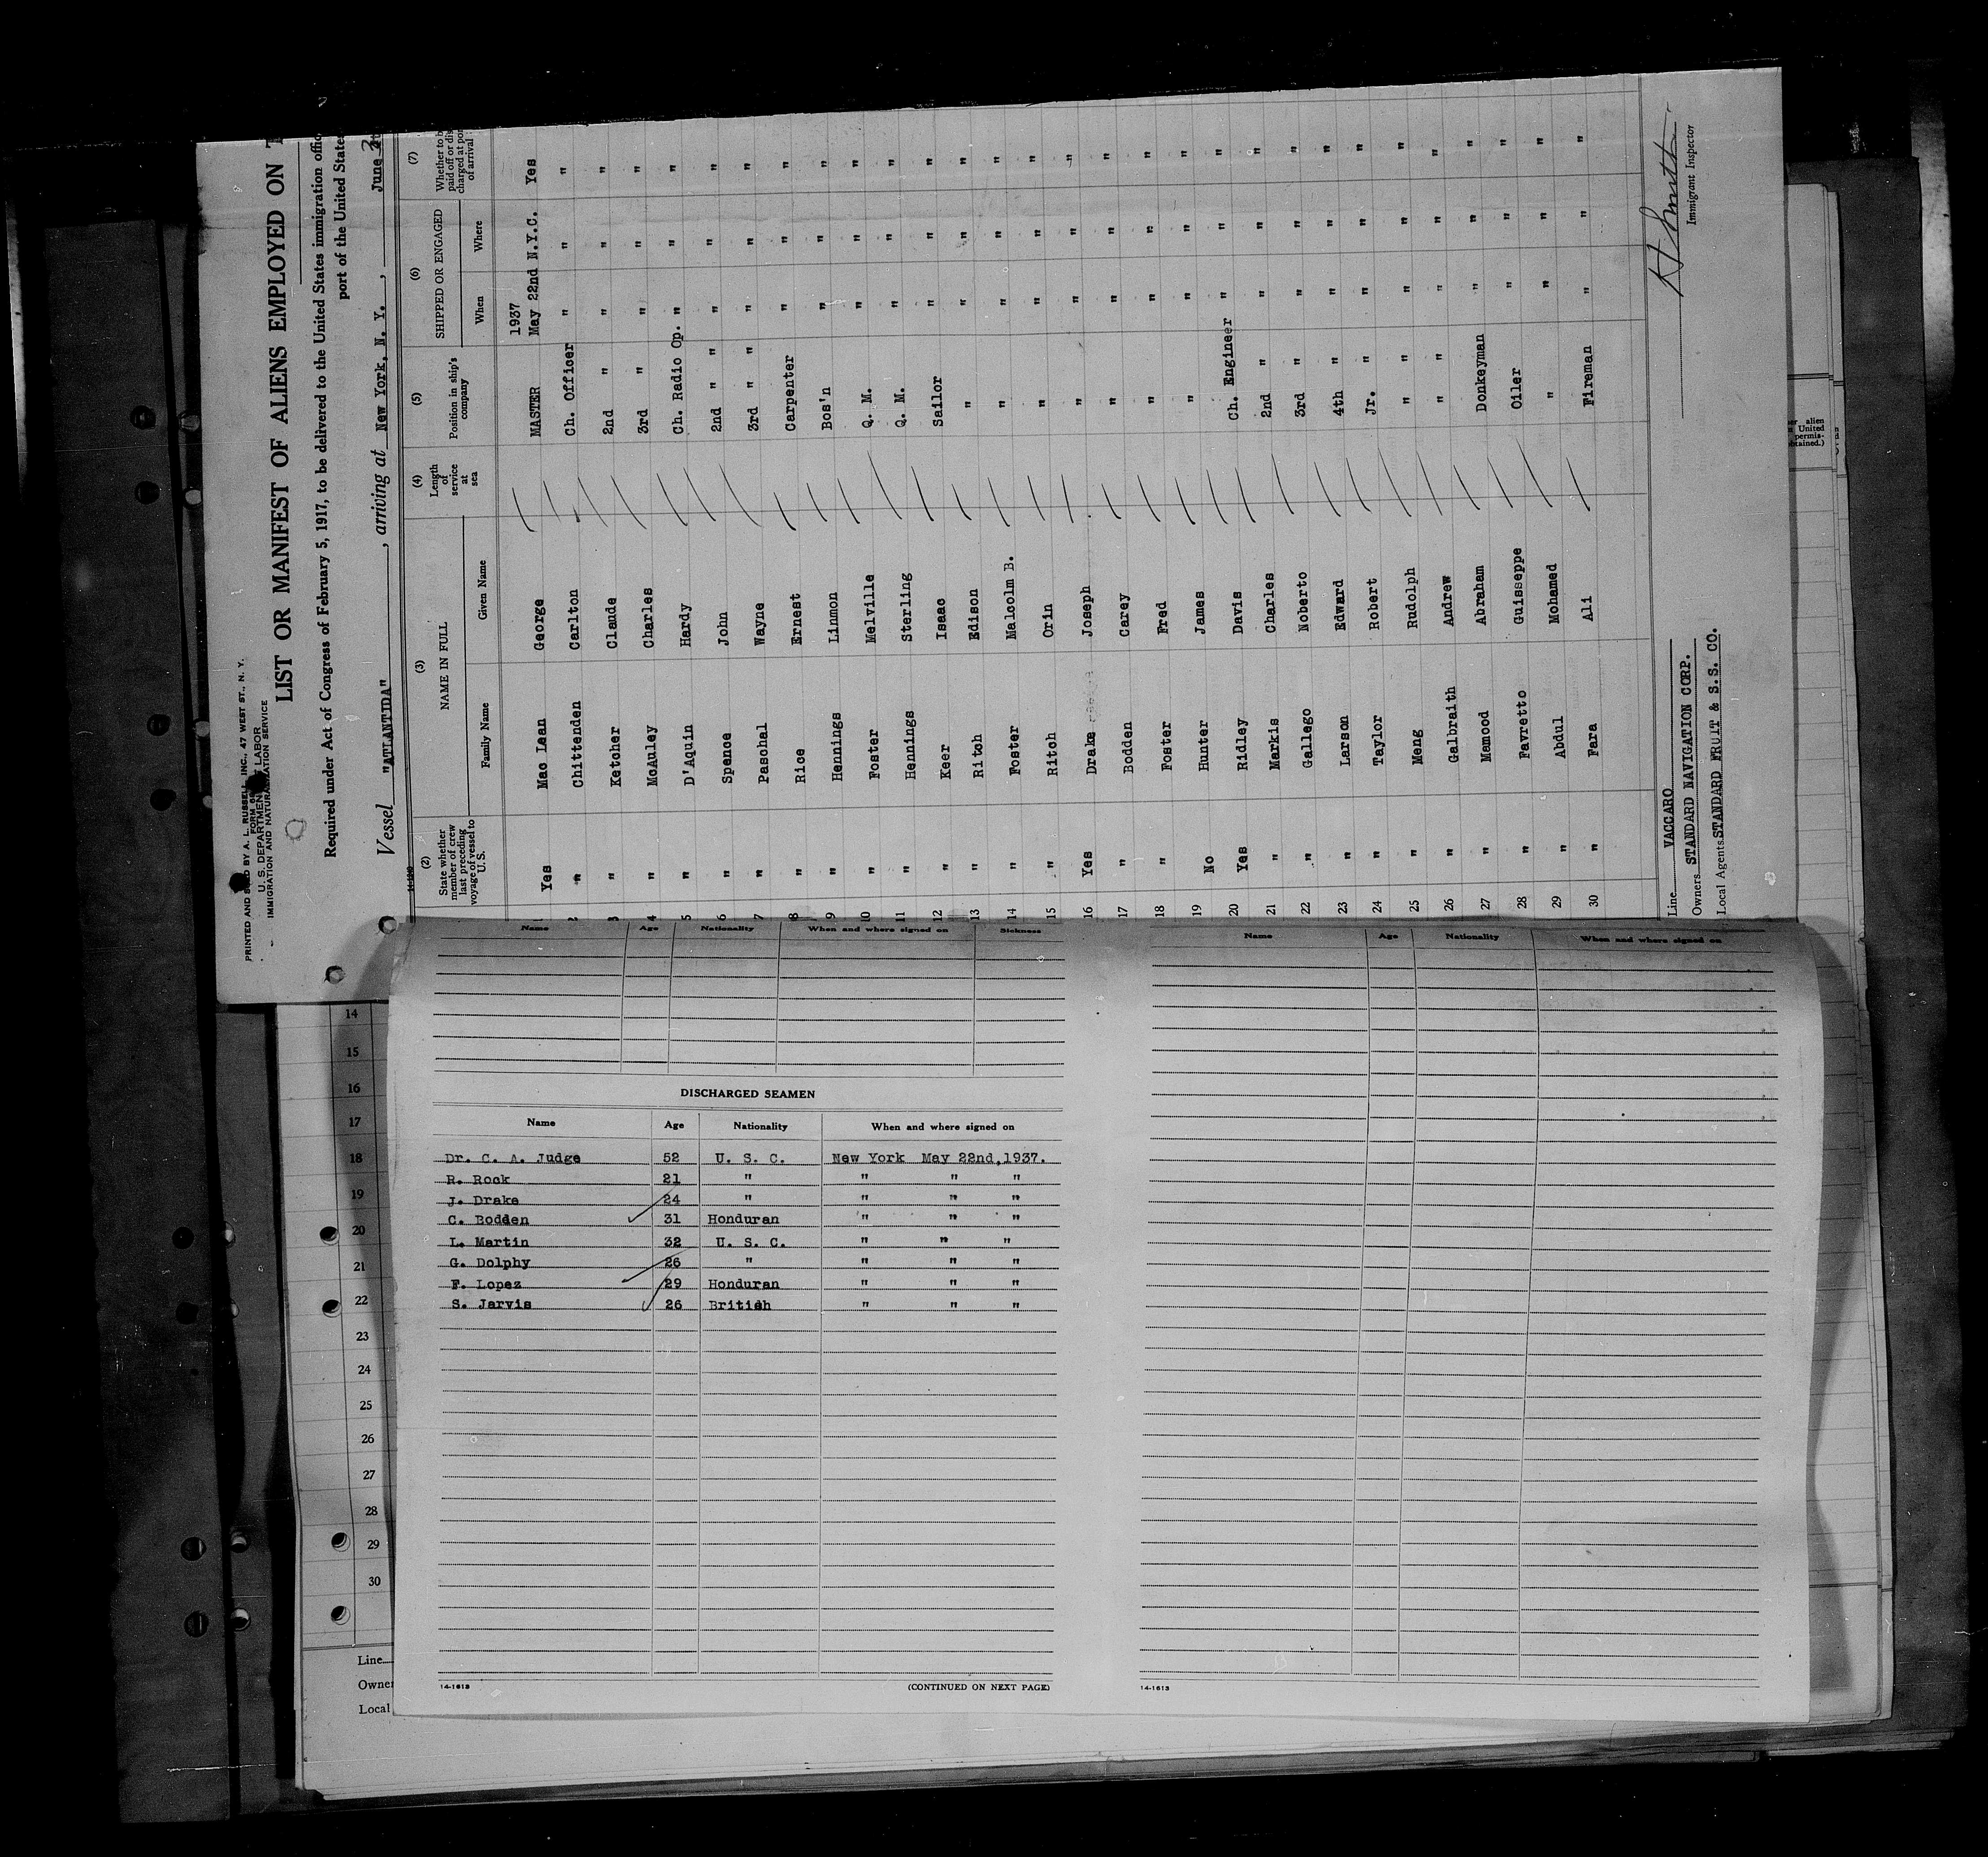 PRINTED AND SOLD BY A. L. RUSSELL, INC., 47 WEST ST., N. Y.
U. S. DEPARTMENT LABOR
IMMIGRATION AND NATURALIZATION SERVICE
LIST OR MANIFEST OF ALIENS EMPLOYED ON
Required under Act of Congress of February 5, 1917, to be delivered to the United States immigration
port of the United
Vessel "ATLANTIDA", arriving at New York, N. Y., June
(2) (3) (4) (5) (6) (7)
State whether member of crew last preceding voyage of vessel to U. S. NAME IN FULL Family Name Given Name Length of service at sea Position in ship's company SHIPPED OR ENGAGED When Where Whether to be paid off or charged at of arrival
1937
1 Yes Mac Lean George MASTER May 22nd N.Y.C. Yes
2 " Chittenden Carlton Ch. Officer " " "
3 " Ketcher Claude 2nd " " " "
4 " McAuley Charles 3rd " " " "
5 " D'Aquin Hardy Ch. Radio Op. " " "
6 " Spence John 2nd " " " " "
7 " Paschal Wayne 3rd " " " " "
8 " Rice Ernest Carpenter " " "
9 " Hennings Linmon Bos'n " " "
10 " Foster Melville Q. M. " " "
11 " Hennings Sterling Q. M. " " "
12 " Keer Isaac Sailor " " "
13 " Ritch Edison " " " "
14 " Foster Malcolm B. " " " "
15 " Ritch Orin " " " "
16 Yes Drake Joseph " " " "
17 " Bodden Carey " " " "
18 " Foster Fred " " " "
19 No Hunter James " " " "
20 Yes Ridley Davis Ch. Engineer " " "
21 " Markis Charles 2nd " " " "
22 " Gallego Noberto 3rd " " " "
23 " Larson Edward 4th " " " "
24 " Taylor Robert Jr. " " " "
25 " Meng Rudolph " " " " "
26 " Galbraith Andrew " " " " "
27 " Mamood Abraham Donkeyman " " "
28 " Favretto Guisseppe Oiler " " "
29 " Abdul Mohamed " " " "
30 " Fara Ali Fireman " " "
Line VACCARO
Owners STANDARD NAVIGATION CORP.
Local Agents STANDARD FRUIT & S.S. CO.
Immigrant Inspector
alien
United
permis-
Name Age Nationality When and where signed on Sickness
DISCHARGED SEAMEN
Name Age Nationality When and where signed on
Dr. C. A. Judge 52 U. S. C. New York May 22nd,1937.
R. Rock 21 " " " "
J. Drake 24 " " " "
C. Bodden 31 Honduran " " "
L. Martin 32 U. S. C. " " "
G. Dolphy 26 " " " "
F. Lopez 29 Honduran " " "
S. Jarvis 26 British " " "
14-1613 (CONTINUED ON NEXT PAGE)
Name Age Nationality When and where signed on
14-1613
14
15
16
17
18
19
20
21
22
23
24
25
26
27
28
29
30
Line
Owner
Local